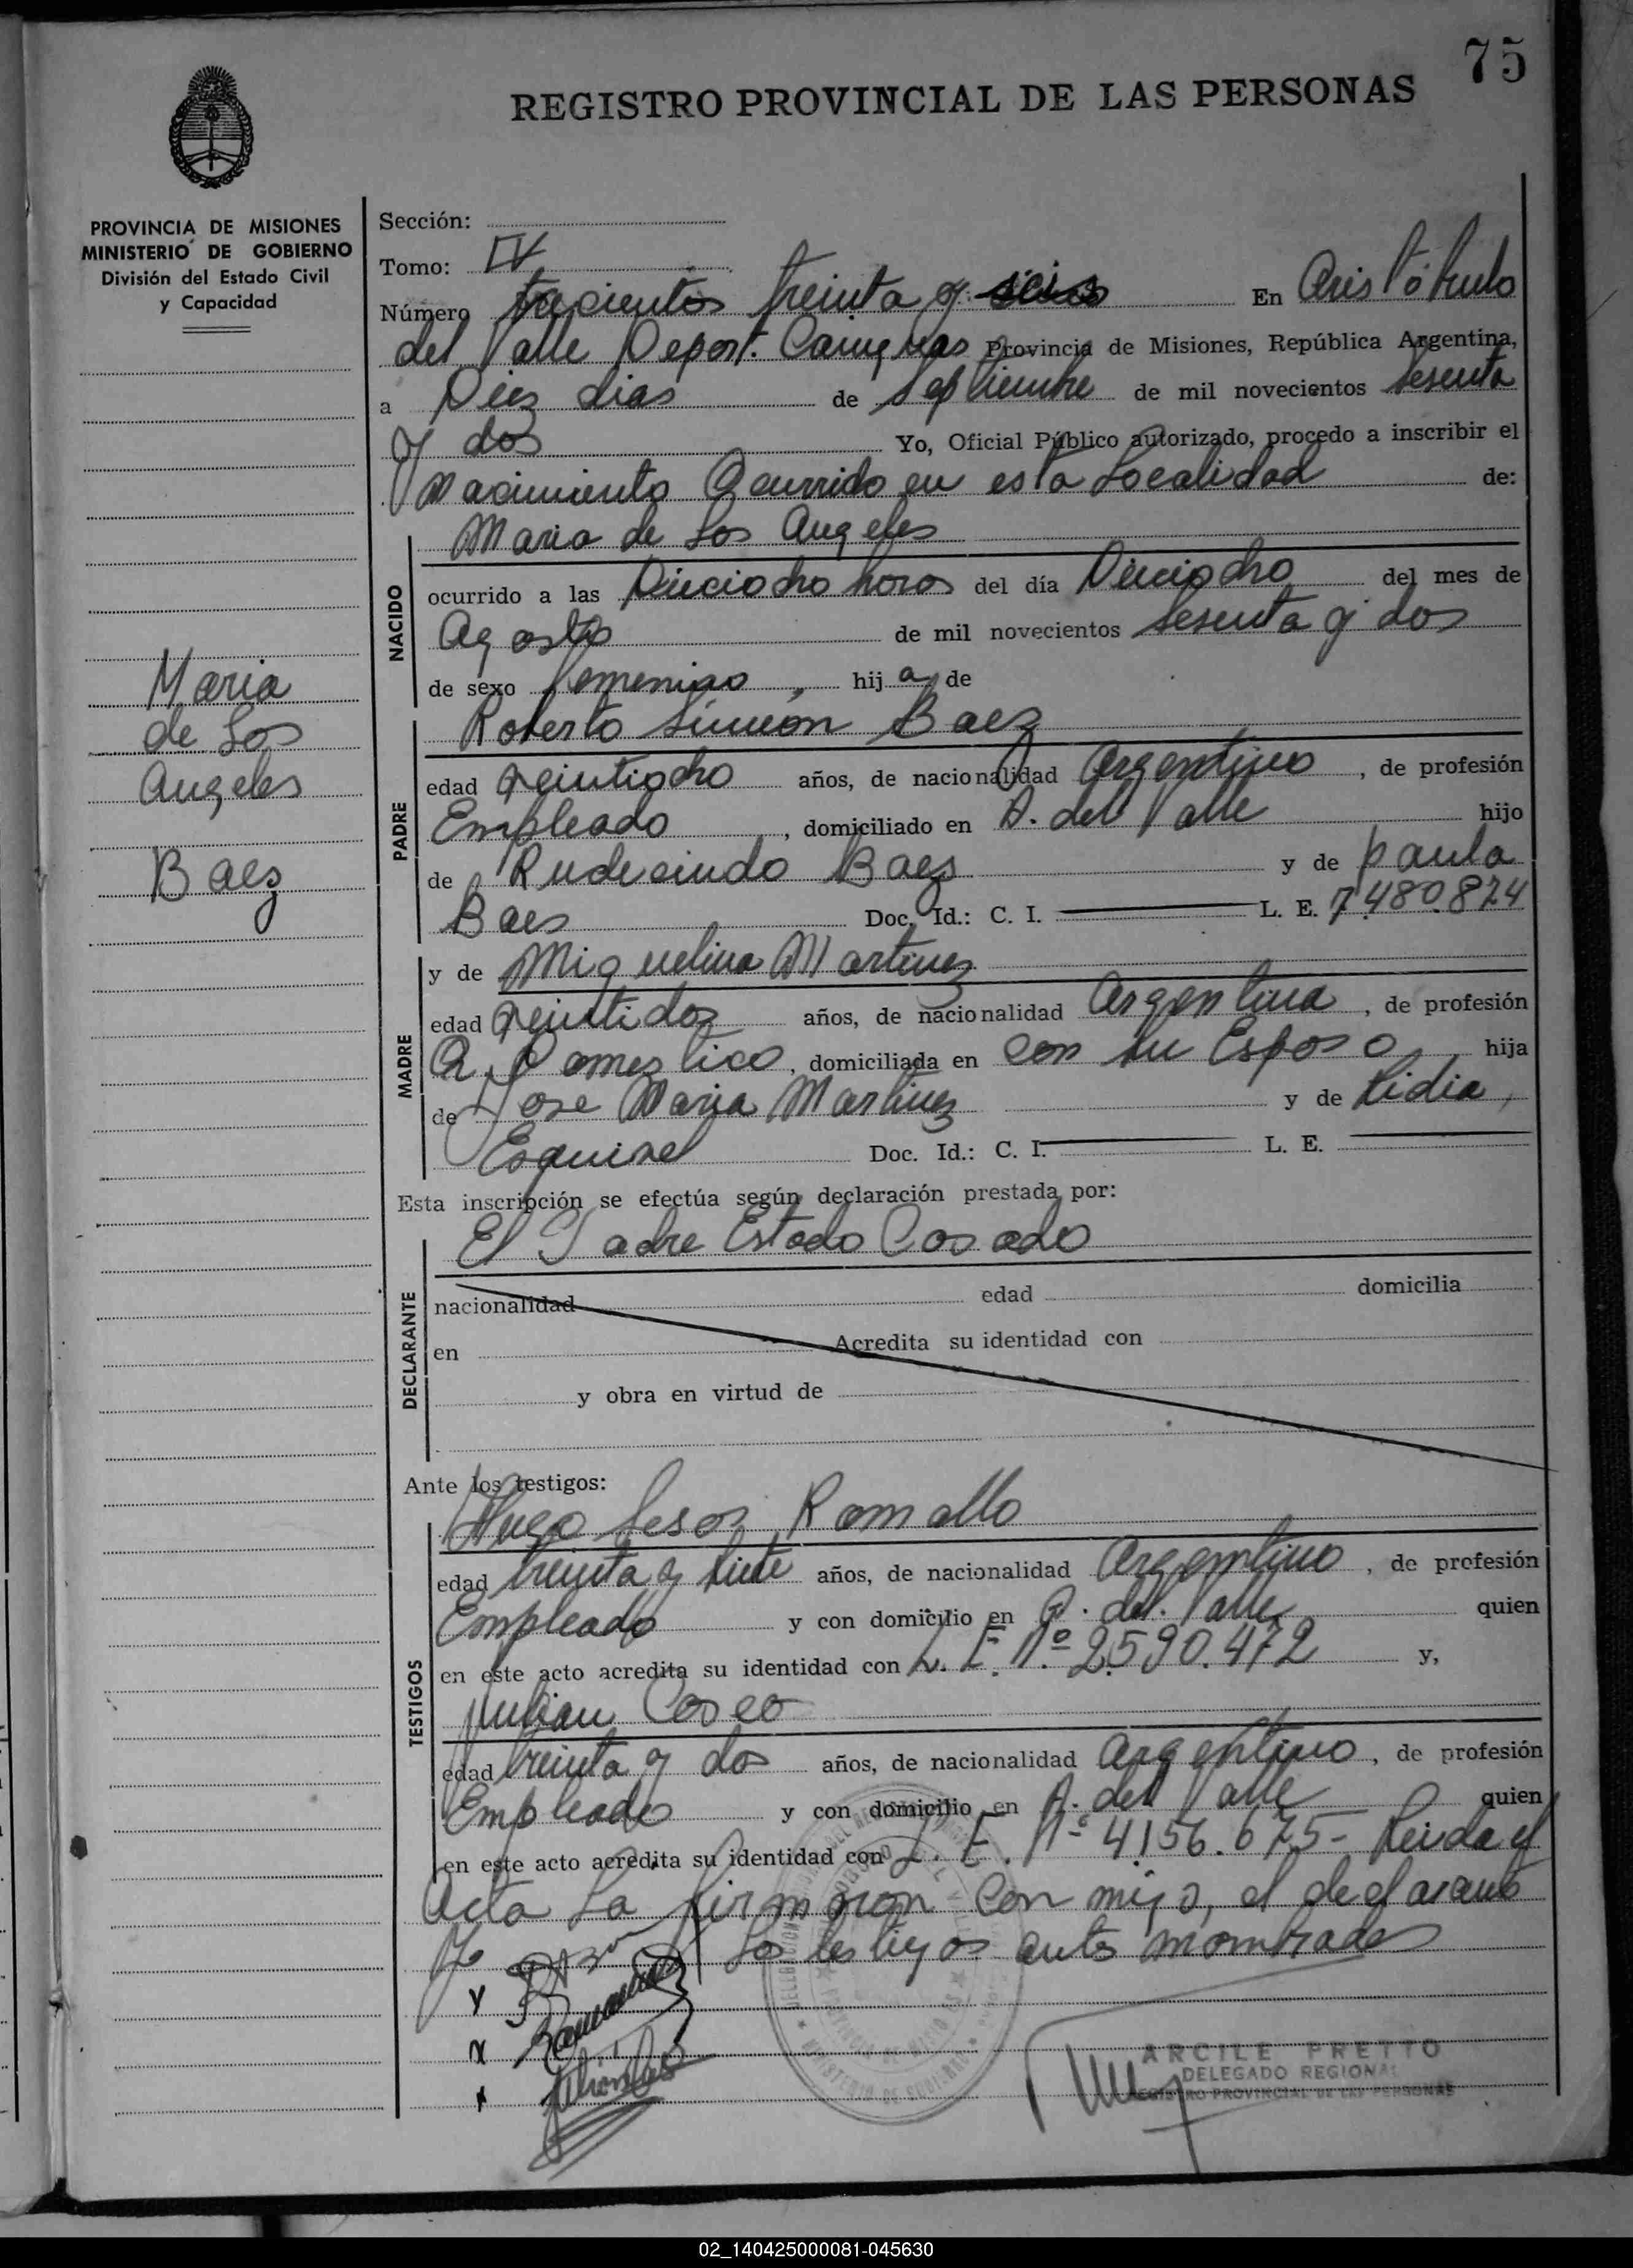 75
REGISTRO PROVINCIAL DE LAS PERSONAS
PROVINCIA DE MISIONES
MINISTERIO DE GOBIERNO
División del Estado Civil
y Capacidad
Maria
de Los
Angeles
Baez
Sección:
Tomo: IV
Número trecientos treinta y seis En Aristóbulo
del Valle Depart. Cainguas Provincia de Misiones, República Argentina,
a Diez dias de Septiembre de mil novecientos sesenta
y dos Yo, Oficial Público autorizado, procedo a inscribir el
Nacimiento Ocurrido en esta Localidad de:
Maria de Los Angeles
NACIDO
ocurrido a las Dieciocho horas del día Dieciocho del mes de
Agosto de mil novecientos sesenta y dos
de sexo femenino, hija de
Roberto Simeón Baez
PADRE
edad veintiocho años, de nacionalidad Argentino, de profesión
Empleado, domiciliado en A. del Valle hijo
de Rudecindo Baez y de paula
Baes Doc. Id.: C. I. L. E. 7.480.824
MADRE
y de Miguelina Martinez
edad veintidos años, de nacionalidad Argentina, de profesión
Q. Domestico, domiciliada en Con su Esposo hija
de Jose Maria Martinez y de Lidia,
Esquivel Doc. Id.: C. I. L. E.
Esta inscripción se efectúa según declaración prestada por:
El Padre Estado Casado
DECLARANTE
nacionalidad edad domicilia
en Acredita su identidad con
y obra en virtud de
Ante los testigos:
Hugo Cesar Ramallo
TESTIGOS
edad treinta y siete años, de nacionalidad Argentino, de profesión
Empleado y con domicilio en A. del Valle quien
en este acto acredita su identidad con L. E. Nº 2.590.472 y,
Julian Coseo
edad treinta y dos años, de nacionalidad argentino, de profesión
Empleado y con domicilio en A. del Valle quien
en este acto acredita su identidad con L. E. Nº 4.156.675- Leida el
Acta La firmaron Con migo, el declarante
y los testigos ante nombrados
ARCILE PRETTO
DELEGADO REGIONAL
REGISTRO PROVINCIAL DE LAS PERSONAS
02_140425000081-045630